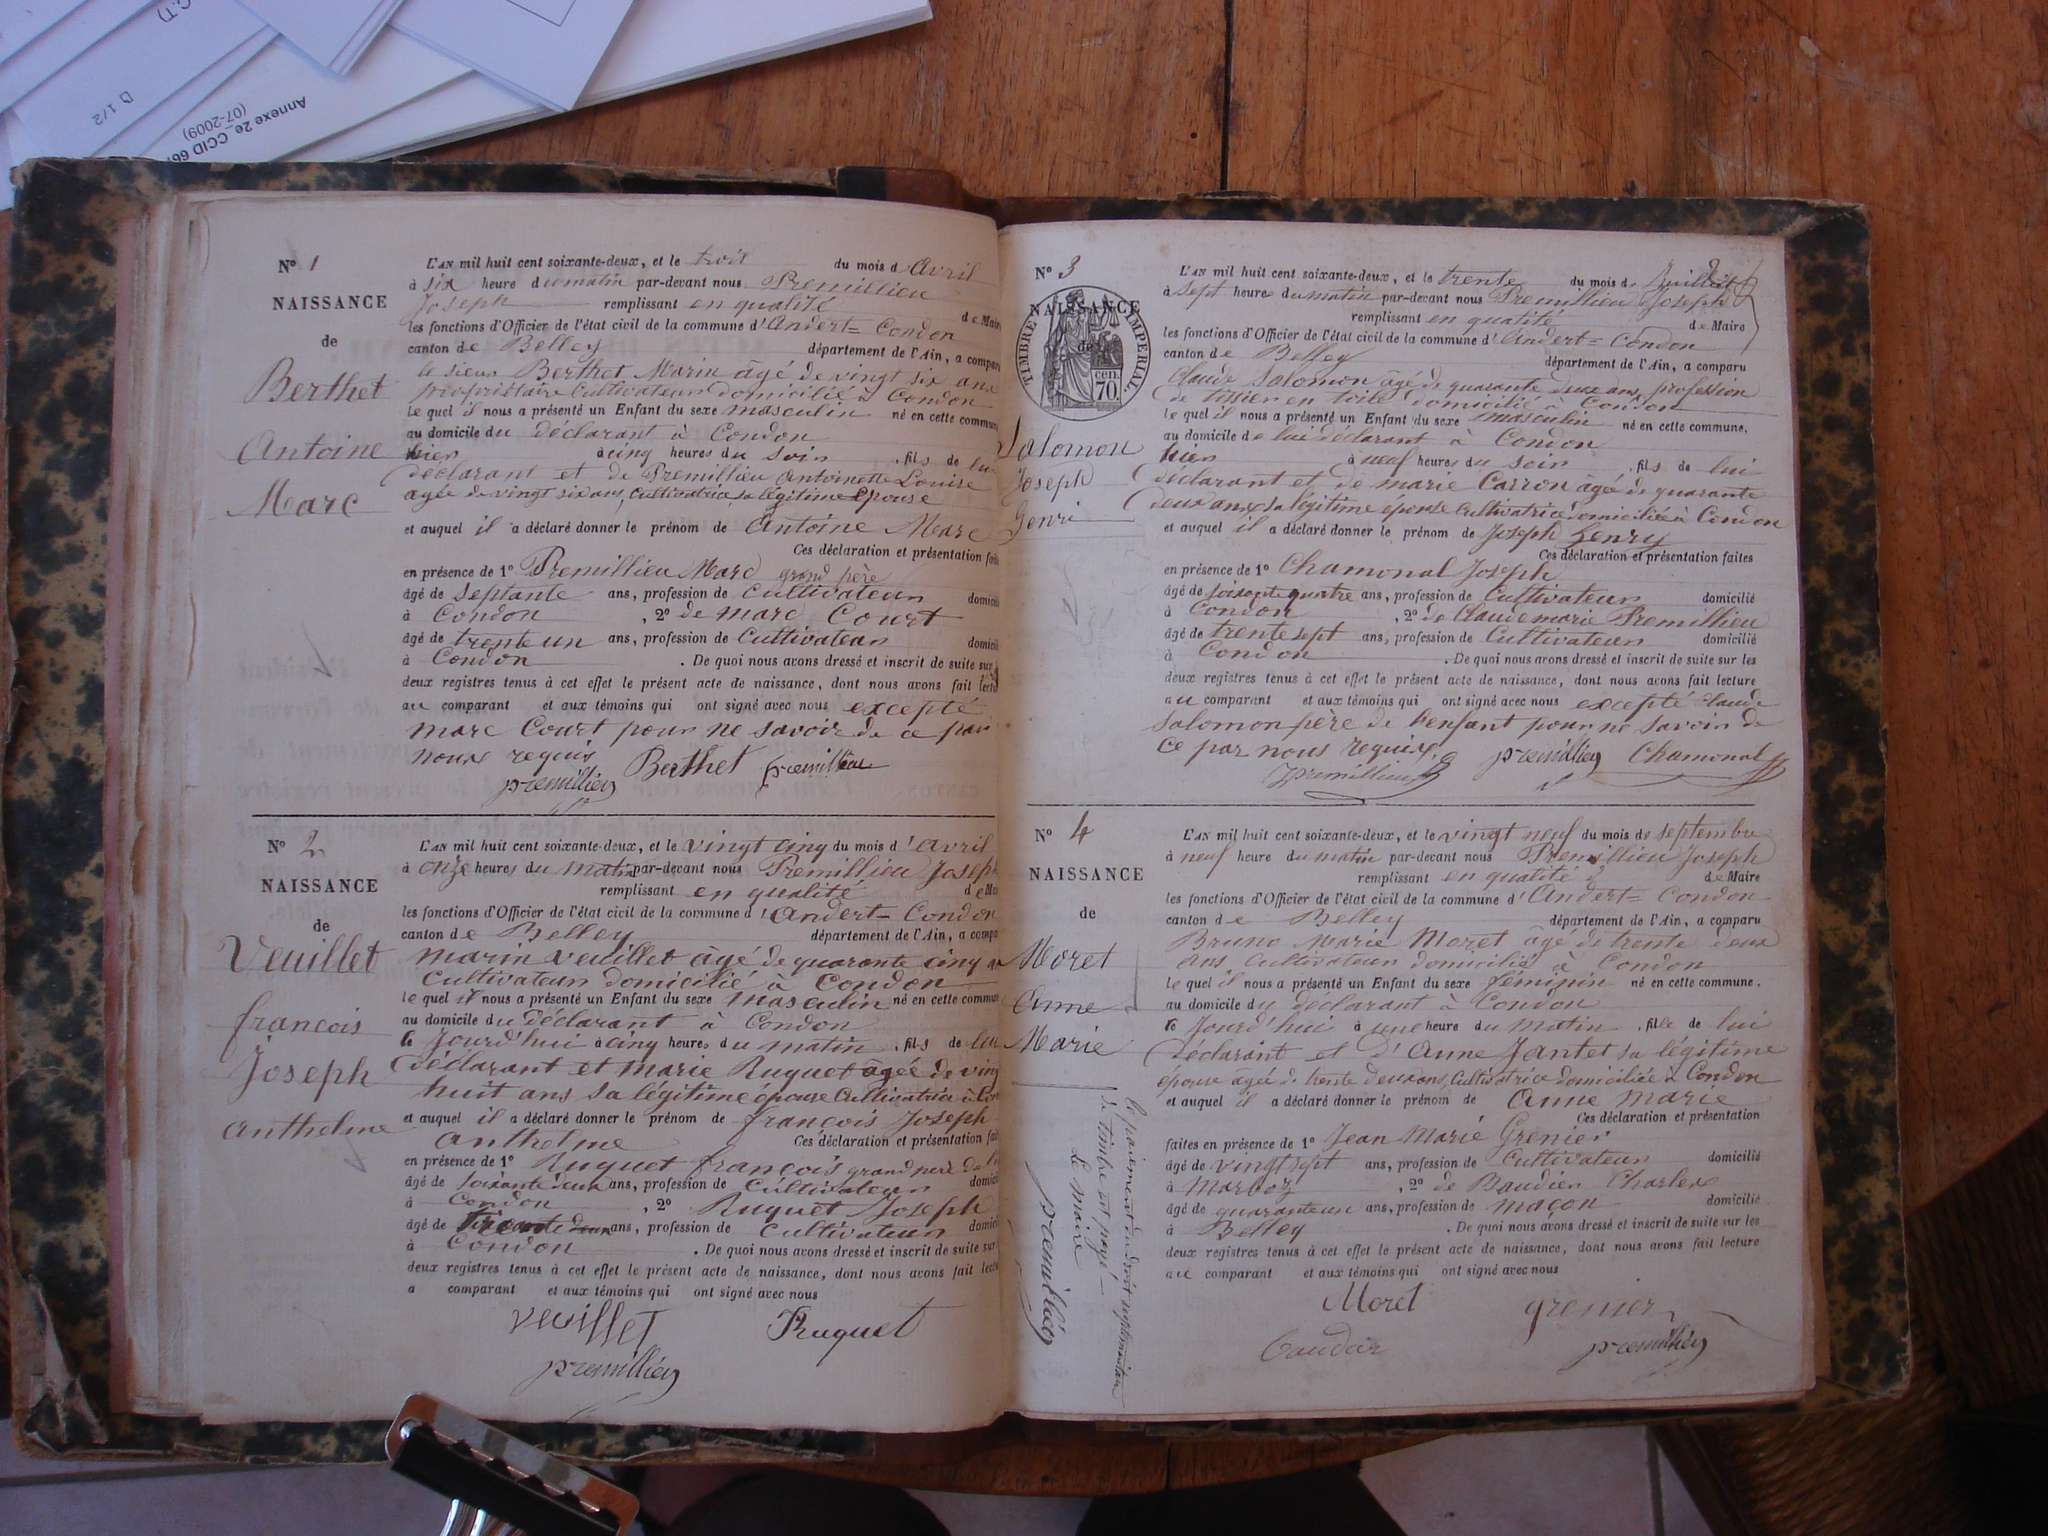 C.T)
D 1/2
Annexe 2e_CCID 66
(07-2009)
N° 1
NAISSANCE
de
Berthet
Antoine
Marc
L'AN mil huit cent soixante-deux, et le trois du mois d'Avril
à six heure du matin par-devant nous Premillieu
Joseph remplissant en qualité de Maire
les fonctions d'Officier de l'état civil de la commune d'Andert=Condon
canton de Belley département de l'Ain, a comparu
le sieur Berthet Marin âgé de vingt six ans
propriétaire Cultivateur domicilié à Condon
le quel il nous a présenté un Enfant du sexe masculin né en cette commune
au domicile du déclarant à Condon
hier à cinq heures du soir , fils de lui
déclarant et de Premillieu Antoinette Louise
agée de vingt six ans, Cultivatrice sa légitime Epouse
et auquel il a déclaré donner le prénom de Antoine Marc
Ces déclaration et présentation faites
en présence de 1° Premillieu Marc grand père
âgé de septante ans, profession de Cultivateur domicilié
à Condon , 2° de marc Court
âgé de trente un ans, profession de Cultivateur domicilié
à Condon . De quoi nous avons dressé et inscrit de suite sur
deux registres tenus à cet effet le présent acte de naissance, dont nous avons fait lecture
au comparant et aux témoins qui ont signé avec nous excepté
marc Court pour ne savoir de ce par
nous requis Berthet premillieu
premillieu
N° 2
NAISSANCE
de
Veuillet
françois
Joseph
anthelme
L'AN mil huit cent soixante-deux, et le vingt cinq du mois d'avril
à onze heures du matin par-devant nous Premillieu Joseph
remplissant en qualité de Mai
les fonctions d'Officier de l'état civil de la commune d'Andert=Condon
canton de Belley département de l'Ain, a compa
marin veuillet âgé de quarante cinq
Cultivateur domicilié à Condon
le quel il nous a présenté un Enfant du sexe masculin né en cette commune
au domicile du Déclarant à Condon
Jourd'hui à cinq heures du matin , fils de lui
déclarant et marie Ruguet agée de ving
huit ans sa légitime épouse Cultivatrice à Con
et auquel il a déclaré donner le prénom de françois Joseph
anthelme Ces déclaration et présentation fai
en présence de 1° Ruguet françois grand père
âgé de soixante deux ans, profession de Cultivateur domici
à Condon , 2° Ruguet Joseph
âgé de ans, profession de Cultivateur domici
à Condon . De quoi nous avons dressé et inscrit de suite sur
deux registres tenus à cet effet le présent acte de naissance, dont nous avons fait lectu
a comparant et aux témoins qui ont signé avec nous
veuillet Ruguet
premillieu
N° 3
NAISSANCE
de
TIMBRE IMPERIAL.
cen.
70.
Salomon
Joseph
henri
L'AN mil huit cent soixante-deux, et le trente du mois de Juillet
à sept heure du matin par-devant nous Premillieu Joseph
remplissant en qualité de Maire
les fonctions d'Officier de l'état civil de la commune d'Andert=Condon
canton de Belley département de l'Ain, a comparu
Claude Salomon âgé de quarante deux ans, profession
de tissier en toile domicilié à Condon
le quel il nous a présenté un Enfant du sexe masculin né en cette commune,
au domicile de lui déclarant à Condon
hier à neuf heures du soir , fils de lui
déclarant et de marie Carron âgé de quarante
deux ans, sa légitime épouse Cultivatrice domiciliée à Condon
et auquel il a déclaré donner le prénom de Joseph henry
Ces déclaration et présentation faites
en présence de 1° Chamonal Joseph
âgé de soixante quatre ans, profession de Cultivateur domicilié
à Condon , 2° de Claude marie Premillieu
âgé de trente sept ans, profession de Cultivateur domicilié
à Condon . De quoi nous avons dressé et inscrit de suite sur les
deux registres tenus à cet effet le présent acte de naissance, dont nous avons fait lecture
au comparant et aux témoins qui ont signé avec nous excepté Claude
Salomon père de l'enfant pour ne savoir de
ce par nous requis. premillieu Chamonal
premillieu
N° 4
NAISSANCE
de
Moret
Anne
Marie
le paiement du droit supplémentaire
de timbre est payé
Le maire
premillieu
L'AN mil huit cent soixante-deux, et le vingt neuf du mois de septembre
à neuf heure du matin par-devant nous Premillieu Joseph
remplissant en qualité de Maire
les fonctions d'Officier de l'état civil de la commune d'Andert=Condon
canton de Belley département de l'Ain, a comparu
Bruno Marie Moret âgé de trente deux
ans Cultivateur domicilié à Condon
le quel il nous a présenté un Enfant du sexe féminin né en cette commune.
au domicile du déclarant à Condon
Jourd'hui à une heure du matin , fille de lui
déclarant et d'Anne Jantet sa légitime
épouse âgée de trente deux ans, Cultivatrice domiciliée à Condon
et auquel il a déclaré donner le prénom de Anne Marie
Ces déclaration et présentation
faites en présence de 1° Jean Marie Grenier
âgé de vingt sept ans, profession de Cultivateur domicilié
à Marboz , 2° de Baudier Charles
âgé de quarante un ans, profession de maçon domicilié
à Belley . De quoi nous avons dressé et inscrit de suite sur les
deux registres tenus à cet effet le présent acte de naissance, dont nous avons fait lecture
au comparant et aux témoins qui ont signé avec nous
Moret grenier
Baudier premillieu